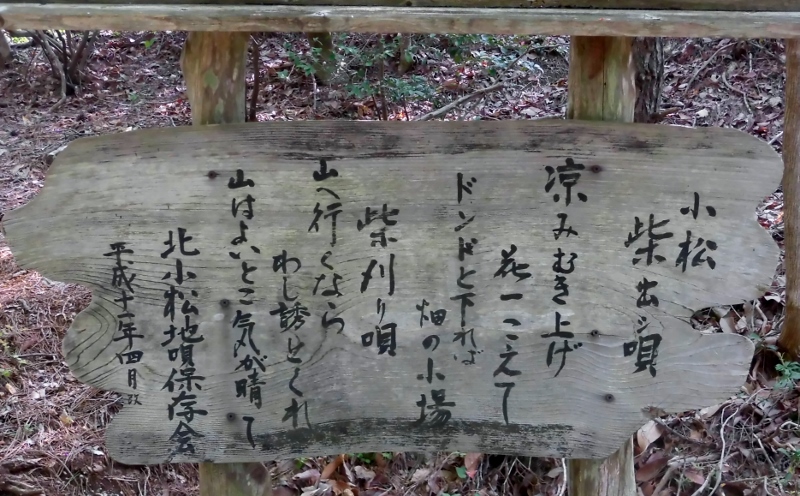 小松
柴出シ唄
凉みむき上げ
花一こえて
ドンドと下れば
畑の小場
柴刈り唄
山へ行くなら
わし誘とくれ
山はよいとこ気が晴て
北小松地唄保存会
平成十一年四月改